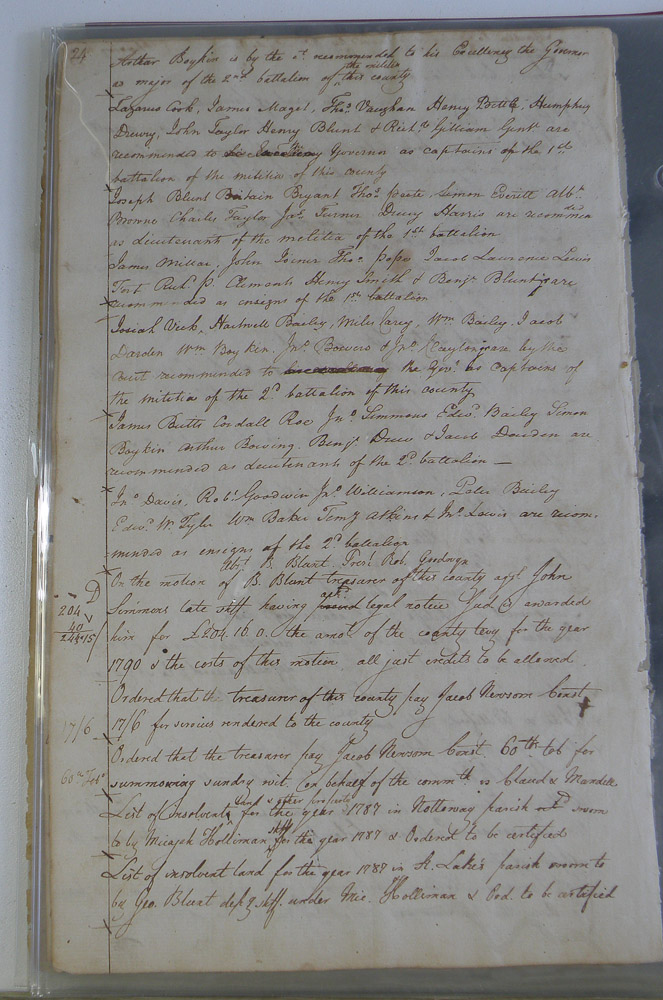 24
Arthur Boykin is by the Ct. recommended to his Excellency the Governor
the militia
as major of the 2nd battalion of this county
Lazarus Cook, James Maget, Thos. Vaughan Henry Briggs, Humphrey
Drewry, John Taylor Henry Blunt & Richd. Gilliam Gent are
recommended to Governor as captains of the 1st
battalion of the militia of this county
Joseph Blunt Britain Bryant Thos. Simon Everitt Albt.
Browne Charles Taylor Jas. Turner Drewry Harris are recommen
ded
as lieutenants of the militia of the 1st battalion
James Millar, John Joiner Thos. Pope, Jacob Lawrence Lewis
Fort Rich. P. Clements Henry Smith & Benja. Blunt are
recommended as ensigns of the 1st battalion
Josiah Vick, Hartwell Bailey, Miles Carey, Wm. Bailey, Jacob
Darden Wm Boykin, Jno. Bowers & Jno. Clayton are by the
Court recommended to the Govr. as Captains of
the militia of the 2d battalion of this county
James Butts Cordall Roe Jno. Simmons Edwd. Bailey Simon
Boykin Arthur Bowing Benja. Drew & Jacob Darden are
recommended as lieutenants of the 2d battalion —
Jno. Davis, Robt. Goodwin Jno. Williamson, Peter Bailey
Edwd. W. Tyler Wm Baker Atkins & Jno. Lewis are recom
mended as ensigns of the 2d battalion
B. Blunt Trest. Rob. Goodwyn
On the motion of B. Blunt treasurer of this county agt. John
D
204
Simmons late shff having legal notice Jud. is awarded
40
244.15/
him for £204.10.0. the amot. of the county levy for the year
1790 & the costs of this motion all just credits to be allowed
Ordered that the treasurer of this county pay Jacob Newsom Const
17/6
17/6 for services rendered to the county
Ordered that the treasurer pay Jacob Newsom Const 60 th tob for
summoning sundry wit. on behalf of the commth. vs Claud & Mandell
land & other property
List of Insolvents for the year 1787 in Nottoway parish sworn
shff
to by Micajah Holliman for the year 1787 & Ordered to be certified
List of insolvent land for the year 1787 in St. Lukes parish sworn to
by Geo. Blunt depy shff. under Mic. Holliman & Ord. to be certified